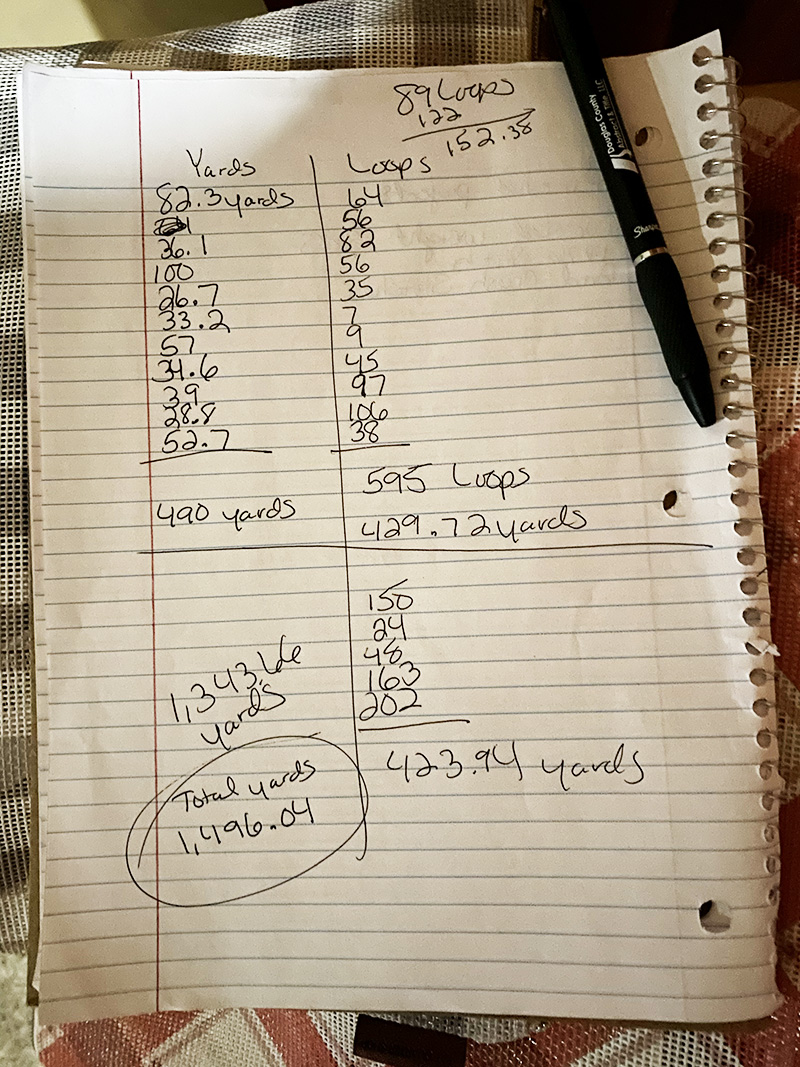 89 Loops
122
152.38
Yards
82.3 yards
36.1
100
26.7
33.2
57
34.6
39
28.8
52.7
490 yards
Loops
64
56
82
56
35
7
9
45
97
106
38
595 Loops
429.72 yards
150
24
48
163
202
423.94 yards
1,343.66
yards
Total yards
1,496.04
Douglas County
Abstract & Title, LLC
Sharpie